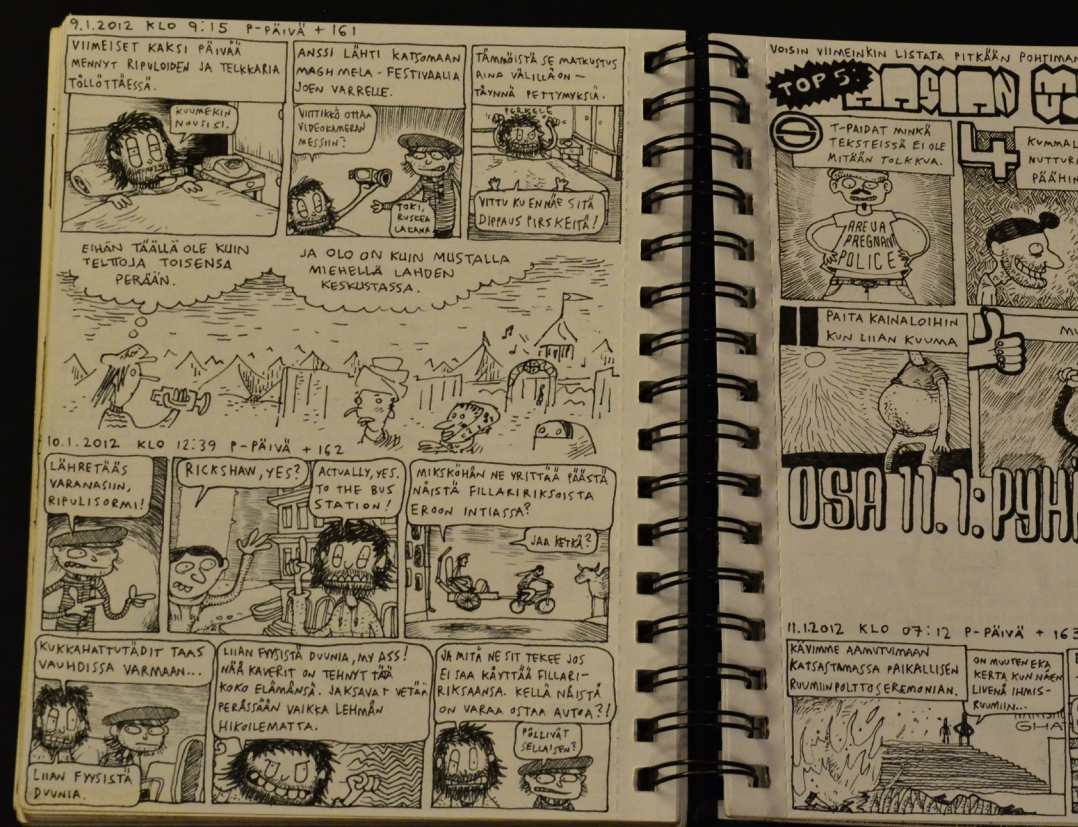 9.1.2012 KLO 9:15 P-PÄIVÄ + 161
VIIMEISET KAKSI PÄIVÄÄ
MENNYT RIPULOIDEN JA TELKKARIA
TÖLLÖTTÄESSÄ.
KUUMEKIN
NOUSISI.
ANSSI LÄHTI KATSOMAAN
MAGH MELA - FESTIVAALIA
JOEN VARRELLE.
VIITTIKKÖ OTTAA
VIDEOKAMERAN
MESSIIN?
TOKI,
RUSKEA
LAKANA.
TÄMMÖISTÄ SE MATKUSTUS
AINA VÄLILLÄ ON –
TÄYNNÄ PETTYMYKSIÄ.
PERKELE
VITTU KU EN NÄE SITÄ
DIPPAUS PIRSKEITÄ!
EIHÄN TÄÄLLÄ OLE KUIN
TELTTOJA TOISENSA
PERÄÄN.
JA OLO ON KUIN MUSTALLA
MIEHELLÄ LAHDEN
KESKUSTASSA.
10.1.2012 KLO 12:39 P-PÄIVÄ + 162
LÄHRETÄÄS
VARANASIIN,
RIPULISORMI!
RICKSHAW, YES?
ACTUALLY, YES.
TO THE BUS
STATION!
MIKSKÖHÄN NE YRITTÄÄ PÄÄSTÄ
NÄISTÄ FILLARIRIKSOISTA
EROON INTIASSA?
JAA KETKÄ?
KUKKAHATTUTÄDIT TAAS
VAUHDISSA VARMAAN...
LIIAN FYYSISTÄ
DUUNIA.
LIIAN FYYSISTÄ DUUNIA, MY ASS!
NÄÄ KAVERIT ON TEHNYT TÄTÄ
KOKO ELÄMÄNSÄ. JAKSAVAT VETÄÄ
PERÄSSÄÄN VAIKKA LEHMÄN
HIKOILEMATTA.
JA MITÄ NE SIT TEKEE JOS
EI SAA KÄYTTÄÄ FILLARI-
RIKSAANSA. KELLÄ NÄISTÄ
ON VARAA OSTAA AUTOA?!
PÖLLIVÄT
SELLAISEN?
VOISIN VIIMEINKIN LISTATA PITKÄÄN POHTIMAN
TOP 5:
AASIAN
5
T-PAIDAT MINKÄ
TEKSTEISSÄ EI OLE
MITÄÄN TOLKKUA.
ARE U A
PREGNANT
POLICE
4
KUMMAL
NUTTURA
PÄÄHIN
PAITA KAINALOIHIN
KUN LIIAN KUUMA
MU
OSA 11.1: PYHÄ
11.1.2012 KLO 07:12 P-PÄIVÄ + 163
KÄVIMME AAMUTUIMAAN
KATSASTAMASSA PAIKALLISEN
RUUMIINPOLTTOSEREMONIAN.
ON MUUTEN EKA
KERTA KUN NÄEN
LIVENÄ IHMIS-
RUUMIIN...
GHA